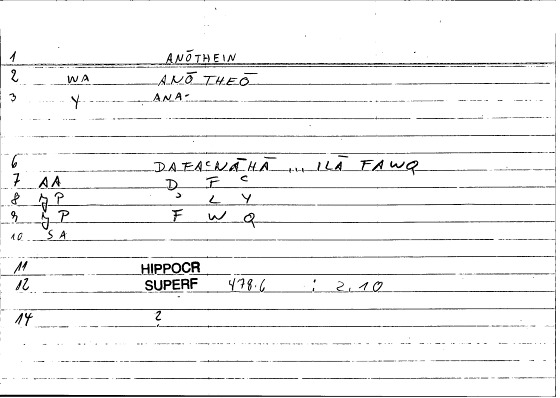 1 ANŌTHEIN
2 WA ANŌTHEŌ
3 Y ANA-
6 DAFAᶜNĀHĀ ... ILĀ FAWQ
7 AA D F C
8 P ʾ L Y
9 P F W Q
10 SA
11 HIPPOCR
12 SUPERF 478.6 : 2.10
14 ?